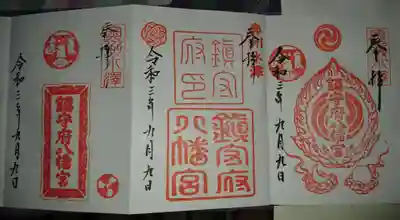 奉拝
鎮守府八幡宮
令和三年九月九日
奉拝
鎮守府印
鎮守府八幡宮
令和三年九月九日
奉拝
鎮守府八幡宮
令和三年九月九日